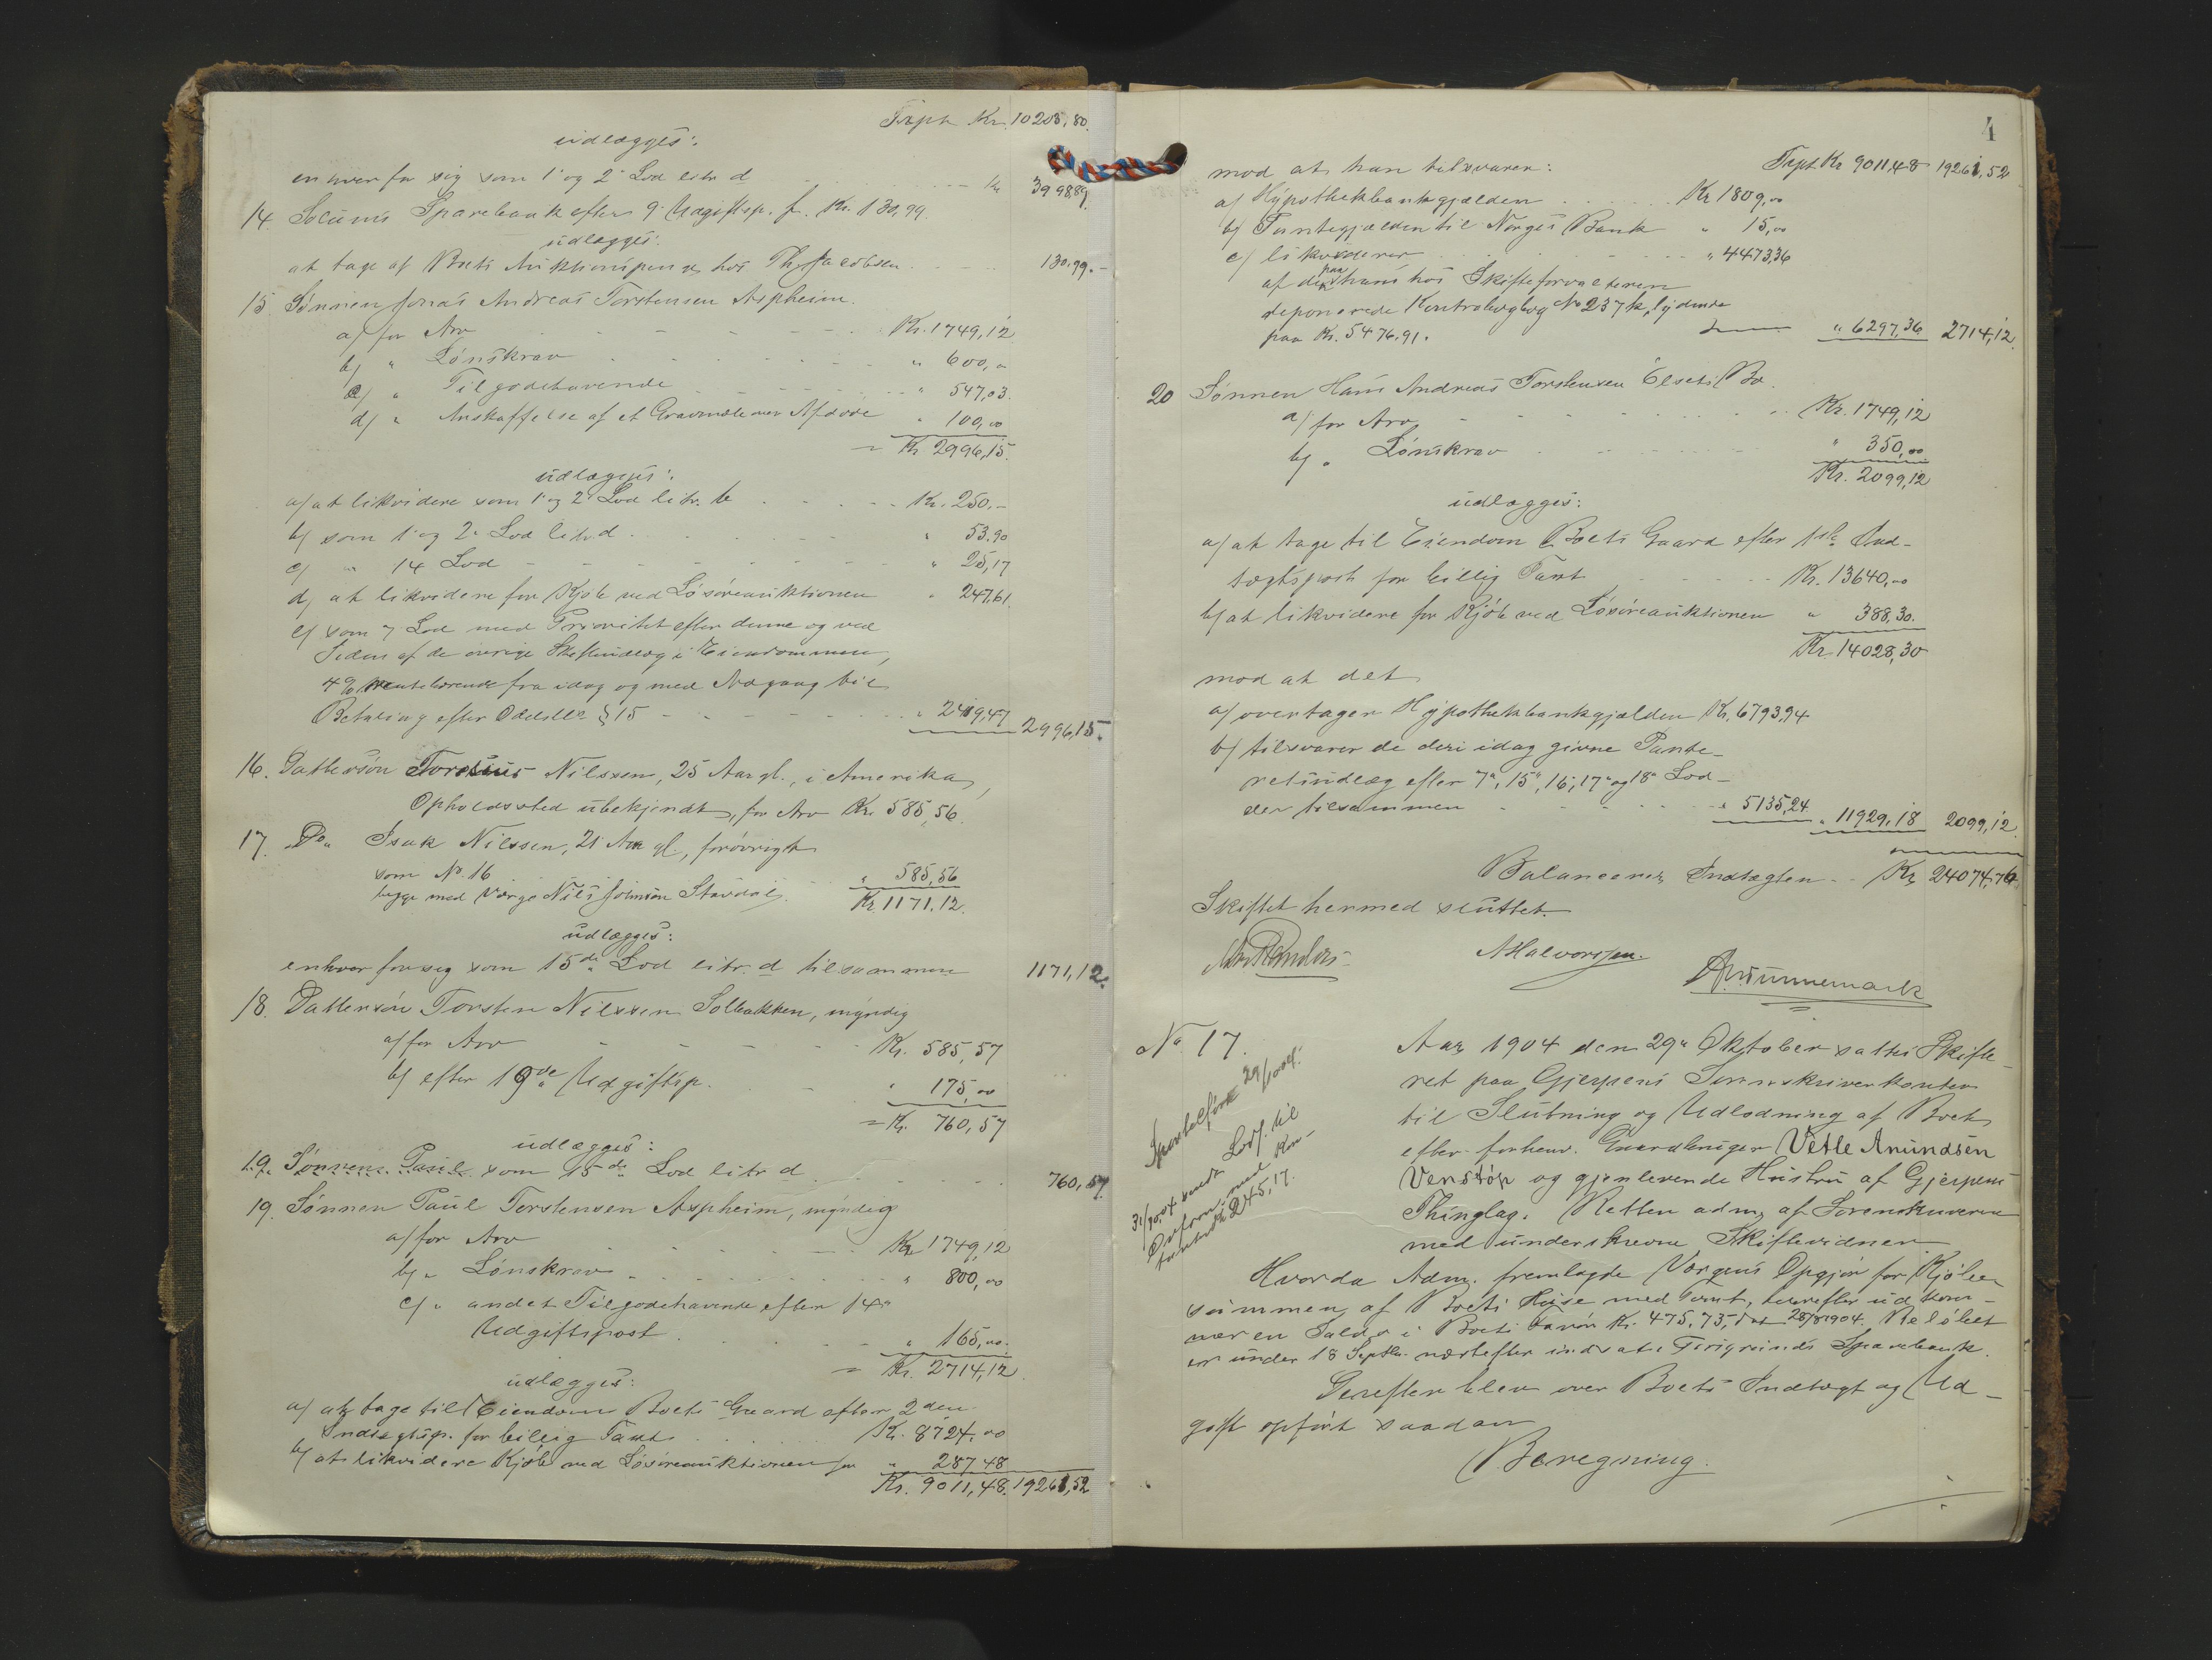 Trpt Kr. 10205,80.
udlægges:
enhver for sig som 1' og 2' Lod litr. d Kr. 3998,89.
14. Solums Sparebank efter 9. Udgiftsp. f. Kr. 130,99.
udlægges:
at tage af Boets Auktionspenge hos Th. Jacobsen 130.99.-
15 Sønnen Jonas Andreas Torstensen Aspheim.
a/ for Arv Kr. 1749,12
b/ " Lønskrav " 600,-
c/ " Tilgodehavende " 547,03.
d/ " Anskaffelse af et Gravmæle over Afdøde " 100,00
= Kr. 2996,15.
udlægges:
a/ at likvidere som 1' og 2' Lod litr. b Kr. 250.-
b/ som 1' og 2' Lod litr. d " 53.90
c/ " 14 Lod " 25,17
d/ at likvidere for Kjøb ved Løsøreauktionen " 247,61.
e/ som 7 Lod med Prioritet efter denne og ved
Siden af de øvrige Skifteudlæg i Eiendommen,
4% rentebærende fra idag og med Adgang til
Betaling efter Odelsl. § 15 " 2419,47 2996,15.
16. Dattersøn Nilssen, 25 Aar gl., i Amerika,
Opholdssted ubekjendt, for Arv Kr. 585,56.
17. Do. Isak Nilssen, 21 Aar gl., forøvrigt
som No. 16 " 585,56
begge med Værge Nils Johnsen Stavdal. Kr. 1171,12.
udlægges:
enhver for sig som 15de Lod litr. d tilsammen 1171,12.
18. Dattersøn Torsten Nilssen Solbakken, myndig
a/ for Arv Kr. 585,57
b/ efter 19de Udgiftsp. " 175,00
= Kr. 760,57
udlægges:
19. Sønnen Paul som 15de Lod litr. d 760,57
19. Sønnen Paul Torstensen Aspheim, myndig
a/ for Arv Kr. 1749,12
b/ " Lønskrav " 800,00
c/ " andet Tilgodehavende efter 14de
Udgiftspost " 165,00.
= Kr. 2714,12.
udlægges:
a/ at tage til Eiendom Boets Gaard efter 2den
Indtægtsp. for billig Taxt Kr. 8724.00
b/ at likvidere Kjøb ved Løsøreauktionen for " 287 48
Kr. 9011,48. 19261,52
4
Trpt Kr 9011,48 19261,52
mod at han tilsvarer:
a/ Hypothekbankgjælden Kr 1809,00
b/ Pantegjælden til Norges Bank " 15,00
c/ likviderer " 4473,36
af den paa hans hos Skifteforvalteren
deponerede Kontrabogbog No 237 k, lydende
paa Kr. 5476.91. " 6297,36 2714,12.
20 Sønnen Hans Andreas Torstensen Elsets Bo.
a/ for Arv Kr. 1749,12
b/ " Lønskrav " 350,00
Kr. 2099,12
udlægges:
a/ at tage til Eiendom Boets Gaard efter 1ste Ind-
tægtspost for billig Taxt Kr. 13640,00
b/ at likvidere for Kjøb ved Løsøreauktionen " 388,30.
Kr. 14028,30
mod at det
a/ overtager Hypothekbankgjælden Kr. 6793,94
b/ tilsvarer de deri idag givne Pante-
retsudlæg efter 7", 15", 16", 17" og 18" Lod-
der tilsammen " 5135,24 " 11929,18 2099,12.
Balancerer Indtægten Kr. 24074,76.
Skiftet hermed sluttet.
AHalvorsen.
No. 17.
29/10 04.
31/10 04 sendt Lodf. til
245,17.
Aar 1904 den 29" Oktober sattes Skifte-
ret paa Gjerpens Sorenskriverkontor
til Slutning og Udlodning af Boet
efter forhenv. Gaardbruger Vetle Anundsen
Venstøp og gjenlevende Hustru af Gjerpens
Thinglag. Retten adm. af Sorenskriveren
med underskrevne Skiftevidner.
Hvorda Adm. fremlagde Værgens Opgjør for Kjøbe-
summen af Boets Huse med Tomt, hvorefter udkom-
mer en Saldo i Boets Favør Kr. 475,73, dat 28/8 1904. Beløbet
er under 18 Septbr. næstefter indsat i Tirigrunds Sparebank.
Derefter blev over Boets Indtægt og Ud-
gift opført saadan
Beregning.